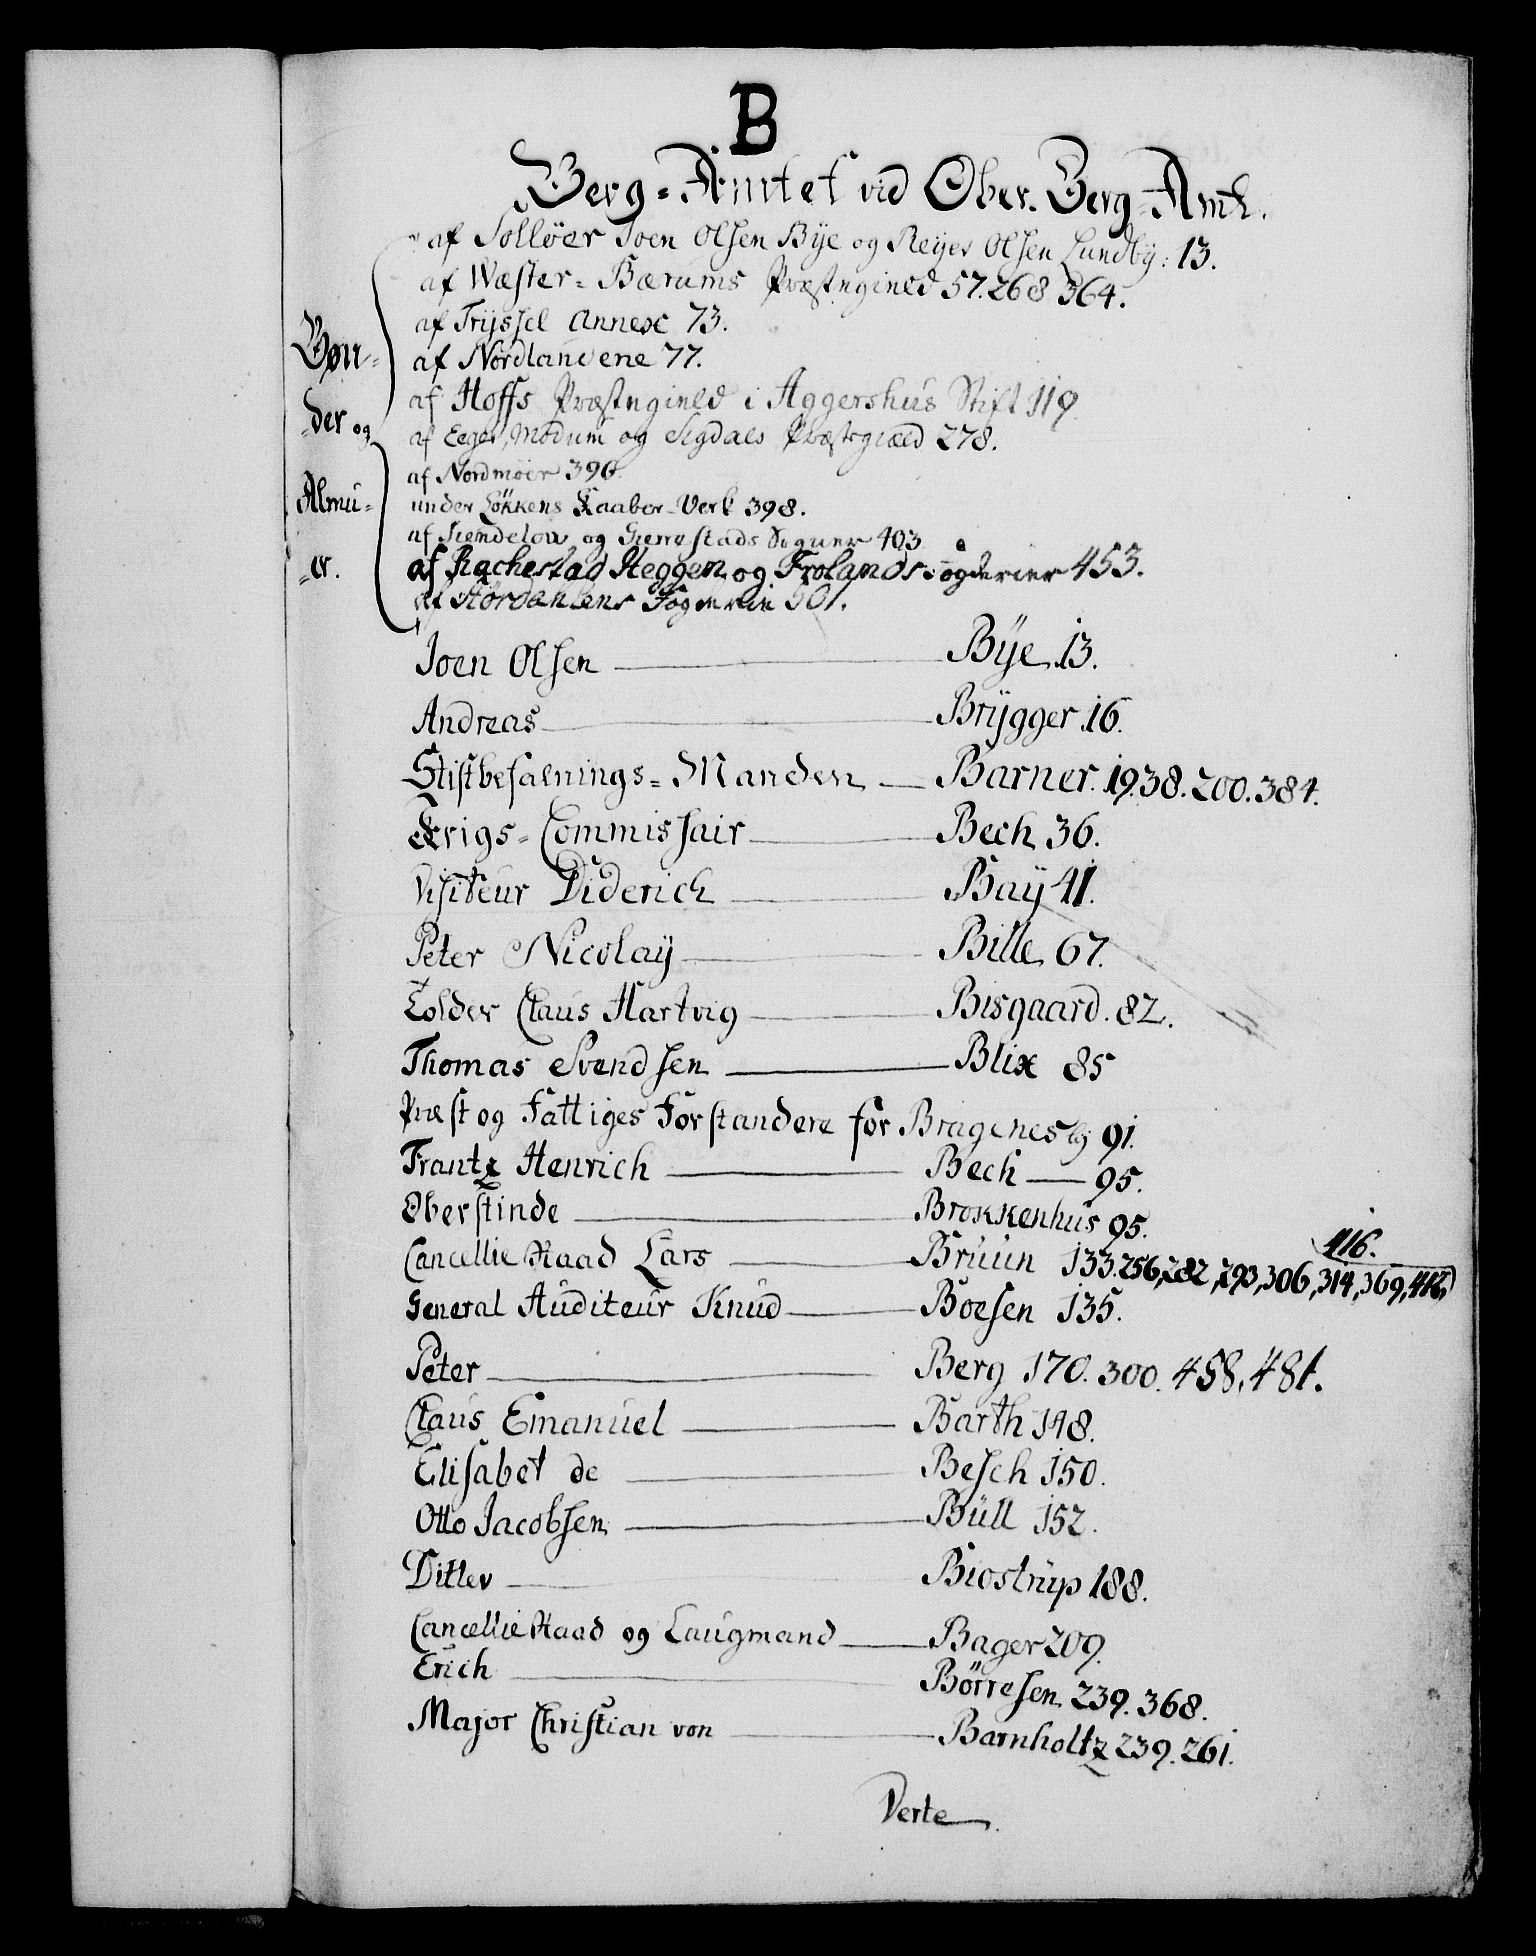 B
Berg=Amtet vid Ober-Berg-Amt.
Bøn=
=der og
Almu=
=er.
af Solløer Joen Olsen Bÿe og Reÿer Olsen Lundbÿ: 13.
af Wæster=Bærums Præstegield 57. 268 364.
af Trÿssel Annex 73.
af Nordlandene 77.
af Hoffs Præstegield i Aggershus Stift 119
af Eeger, Modum og Sigdals Præstegiæld 278.
af Nordmöer 390.
under Løkkens Kaaber-Verk 398.
af og Gierrestads Sogner 403
af Rachestad Heggen og Frolands Fogderier 453.
af Hördahlens Fogderie 501.
Joen Olsen — Bÿe 13.
Andreas — Brÿgger 16.
Stiftbefalnings=Manden — Barner. 19. 38. 200. 384.
Krigs=Commissair — Bech 36.
Visiteur Diderich — Baÿ 41.
Peter Nicolaÿ — Bille 67.
Tolder Claus Hartvig — Bisgaard. 82.
Thomas Svendsen — Blix 85
Præst og Fattiges Forstandere for Bragenes bÿ 91.
Frantz Henrich — Bech — 95.
Oberstinde — Brokkenhus 95.
416.
Cancellie Raad Lars — Bruun 133. 256, 282, 293, 306, 314, 369, 416,
General Auditeur Knud — Boesen 135.
Peter — Berg 170. 300. 458, 481.
Claus Emanuel — Barth 148.
Elisabet de — Besch 150.
Otto Jacobsen — Büll 152.
Ditlev — Biostrup 188.
Cancellie Raad og Laugmand — Bager 209.
Erich — Börresen 239. 368.
Major Christian von — Barnholtz 239. 261.
Verte